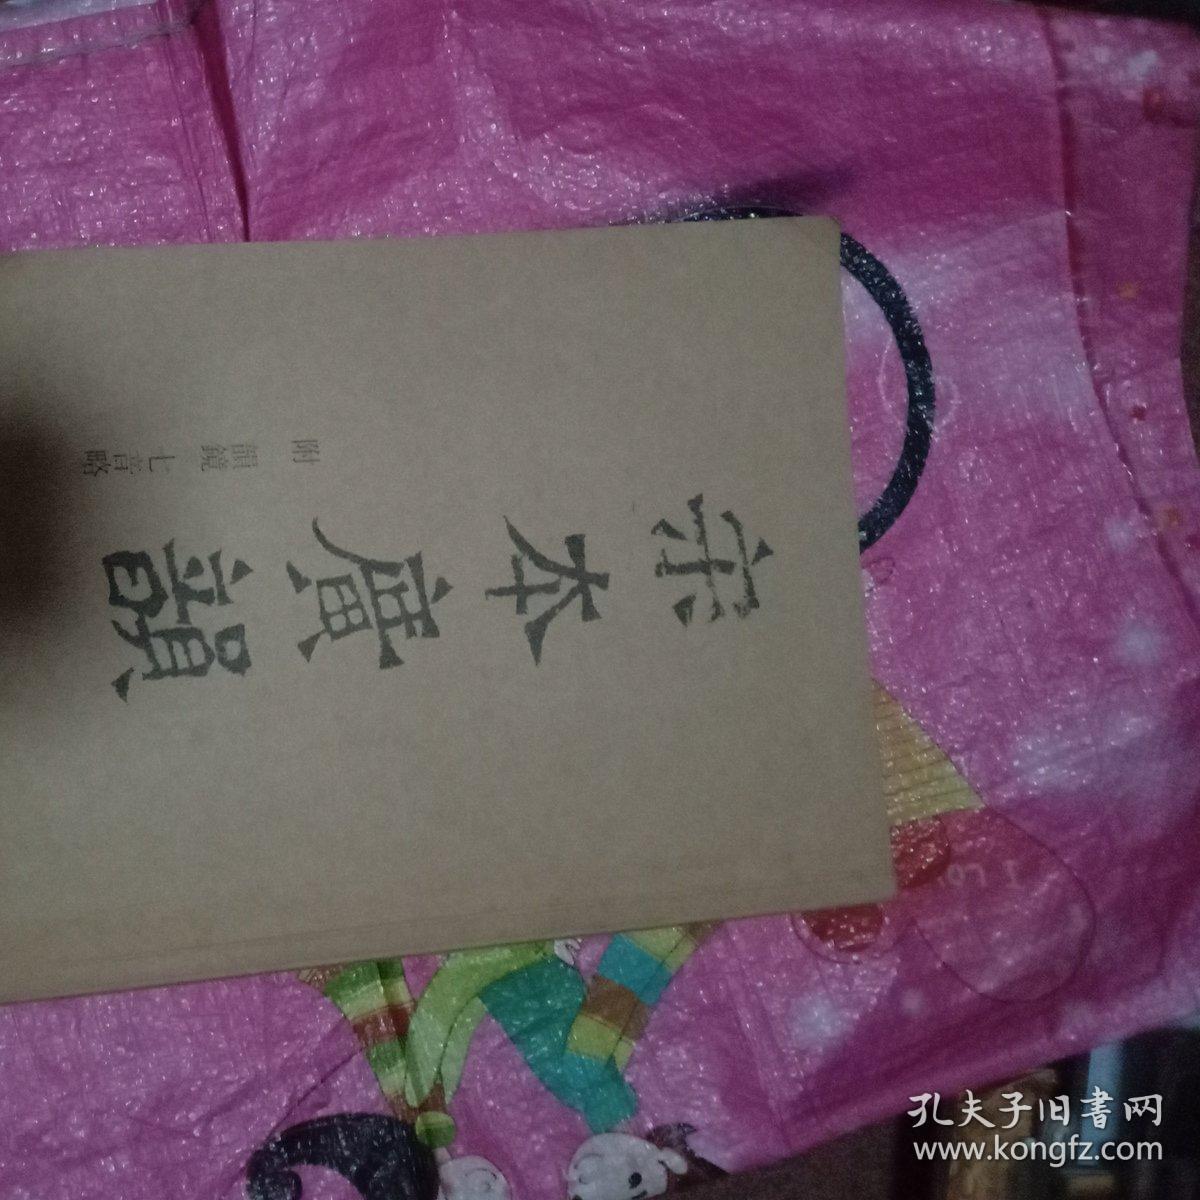 宋本廣韻
附 韻鏡 七音略
孔夫子旧書网
www.kongfz.com